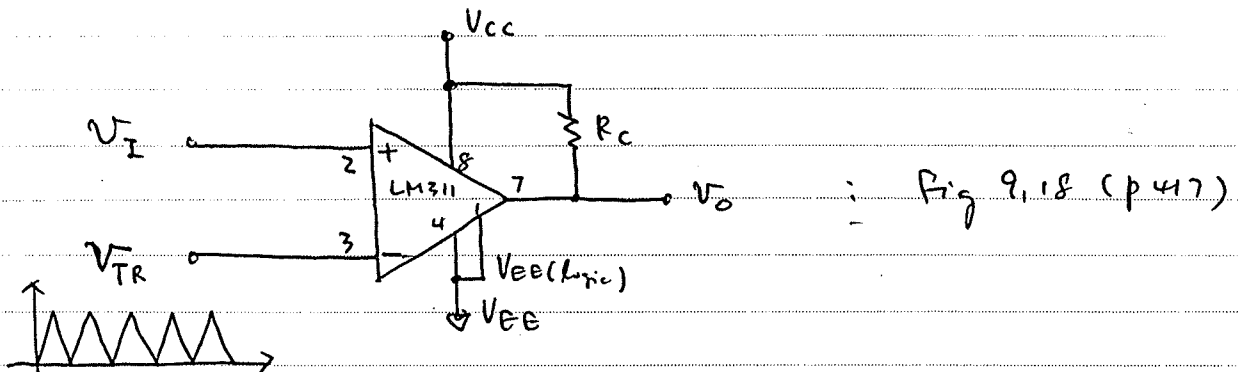 VCC
RC
VI
2
+
8
LM311
7
Vo
: Fig 9.18 (p417)
4
1
VTR
3
−
VEE(logic)
VEE